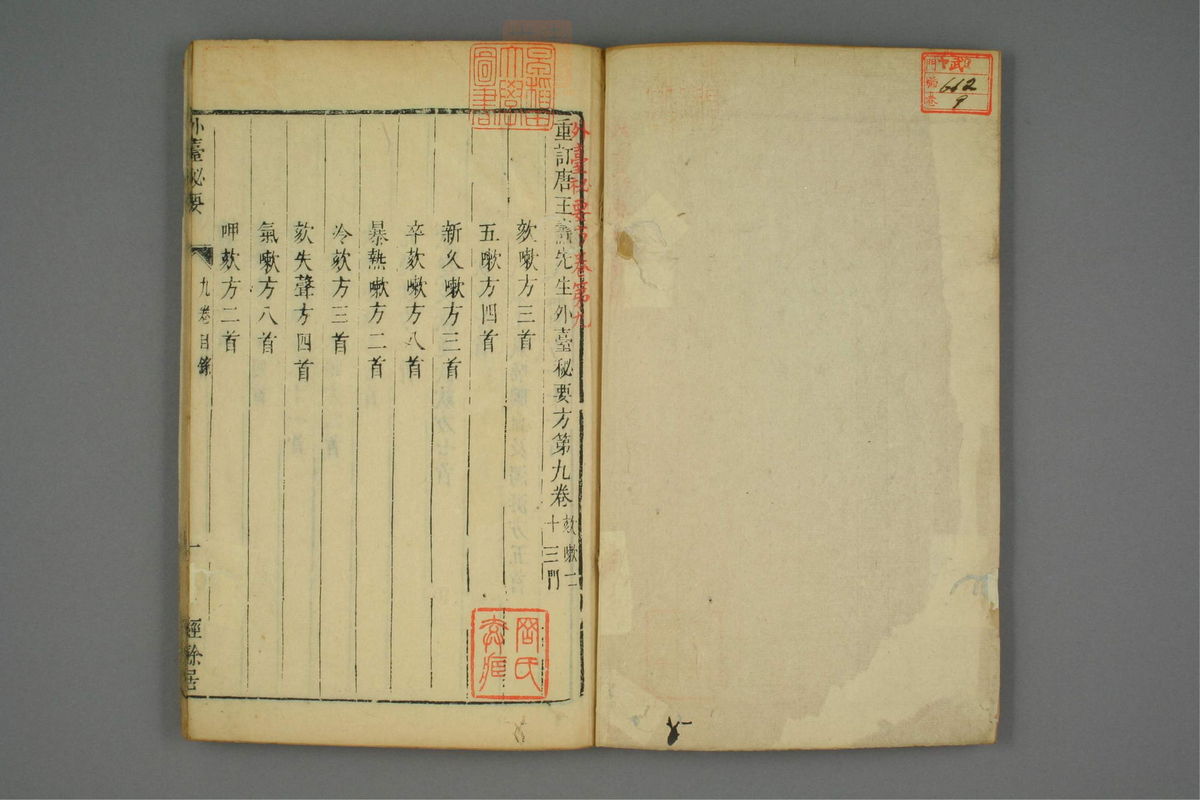 門
函
卷
662
9
外臺秘要方卷第九
重訂唐王燾先生外臺秘要方第九卷
欬嗽二
十三門
欬嗽方三首
五嗽方四首
新久嗽方三首
卒欬嗽方八首
暴熱嗽方二首
冷欬方三首
欬失聲方四首
氣嗽方八首
呷欬方二首
外臺秘要
九卷目錄
一
經餘居
圖書
大學